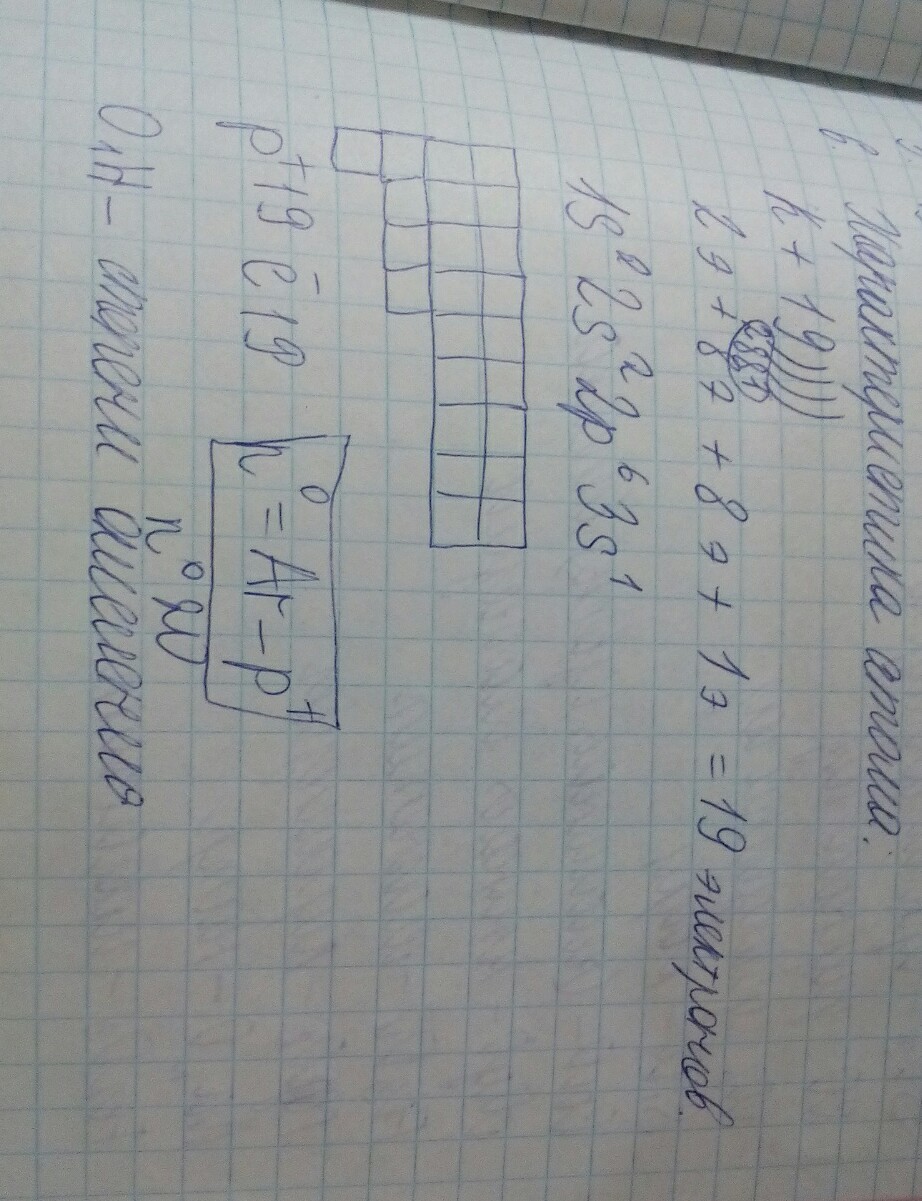 в. Характеристика атома:
K + 19))))
2 8 8 1
2э + 8э + 8э + 1э = 19 электронов
1S² 2S² 2p⁶ 3S¹
p⁺19 e⁻19 n⁰ = Ar – p⁺
n⁰ 20
O, H –